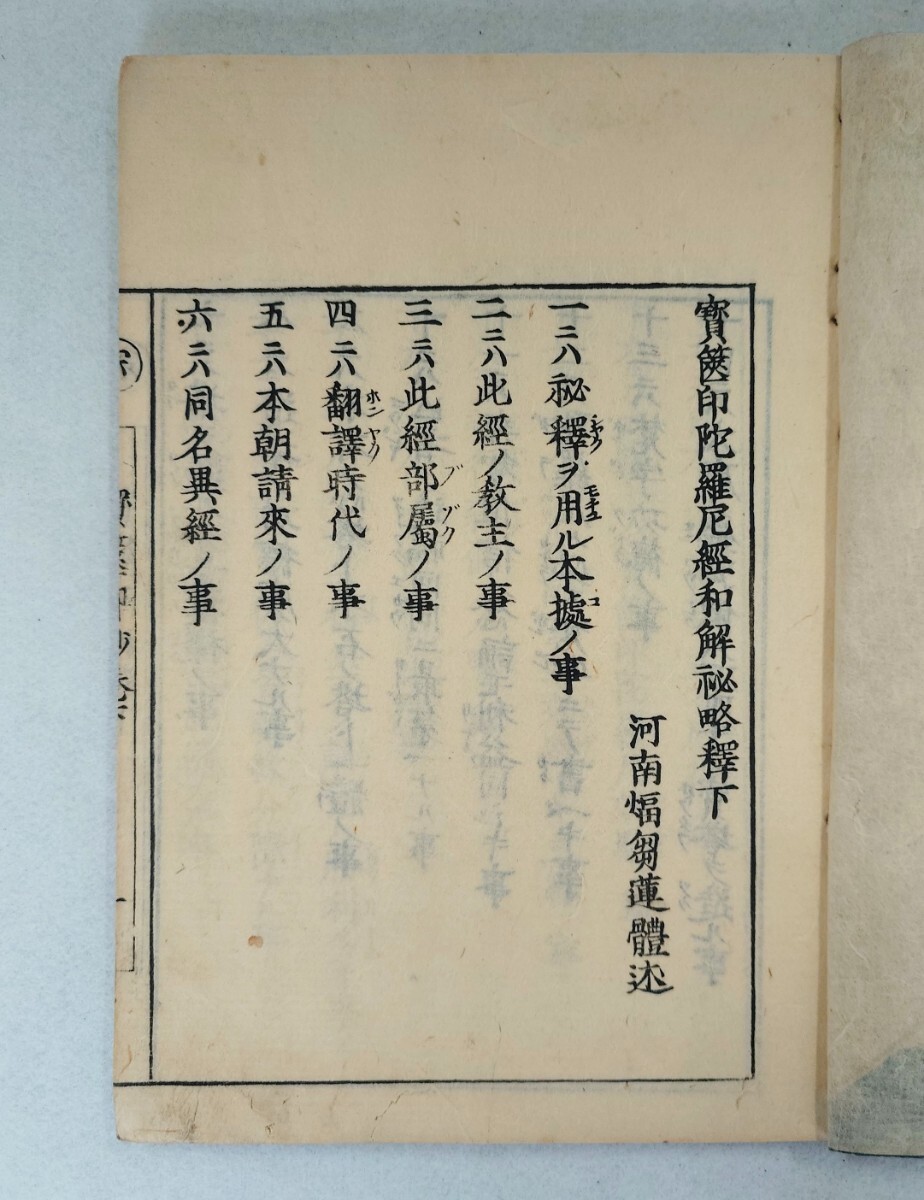 寶篋印陀羅尼經和解祕略釋下
河南煏芻蓮體述
一ニハ祕釋ヲ用ル本據ノ事
二ニハ此經ノ教主ノ事
三ニハ此經部屬ノ事
四ニハ翻譯時代ノ事
五ニハ本朝請來ノ事
六ニハ同名異經ノ事